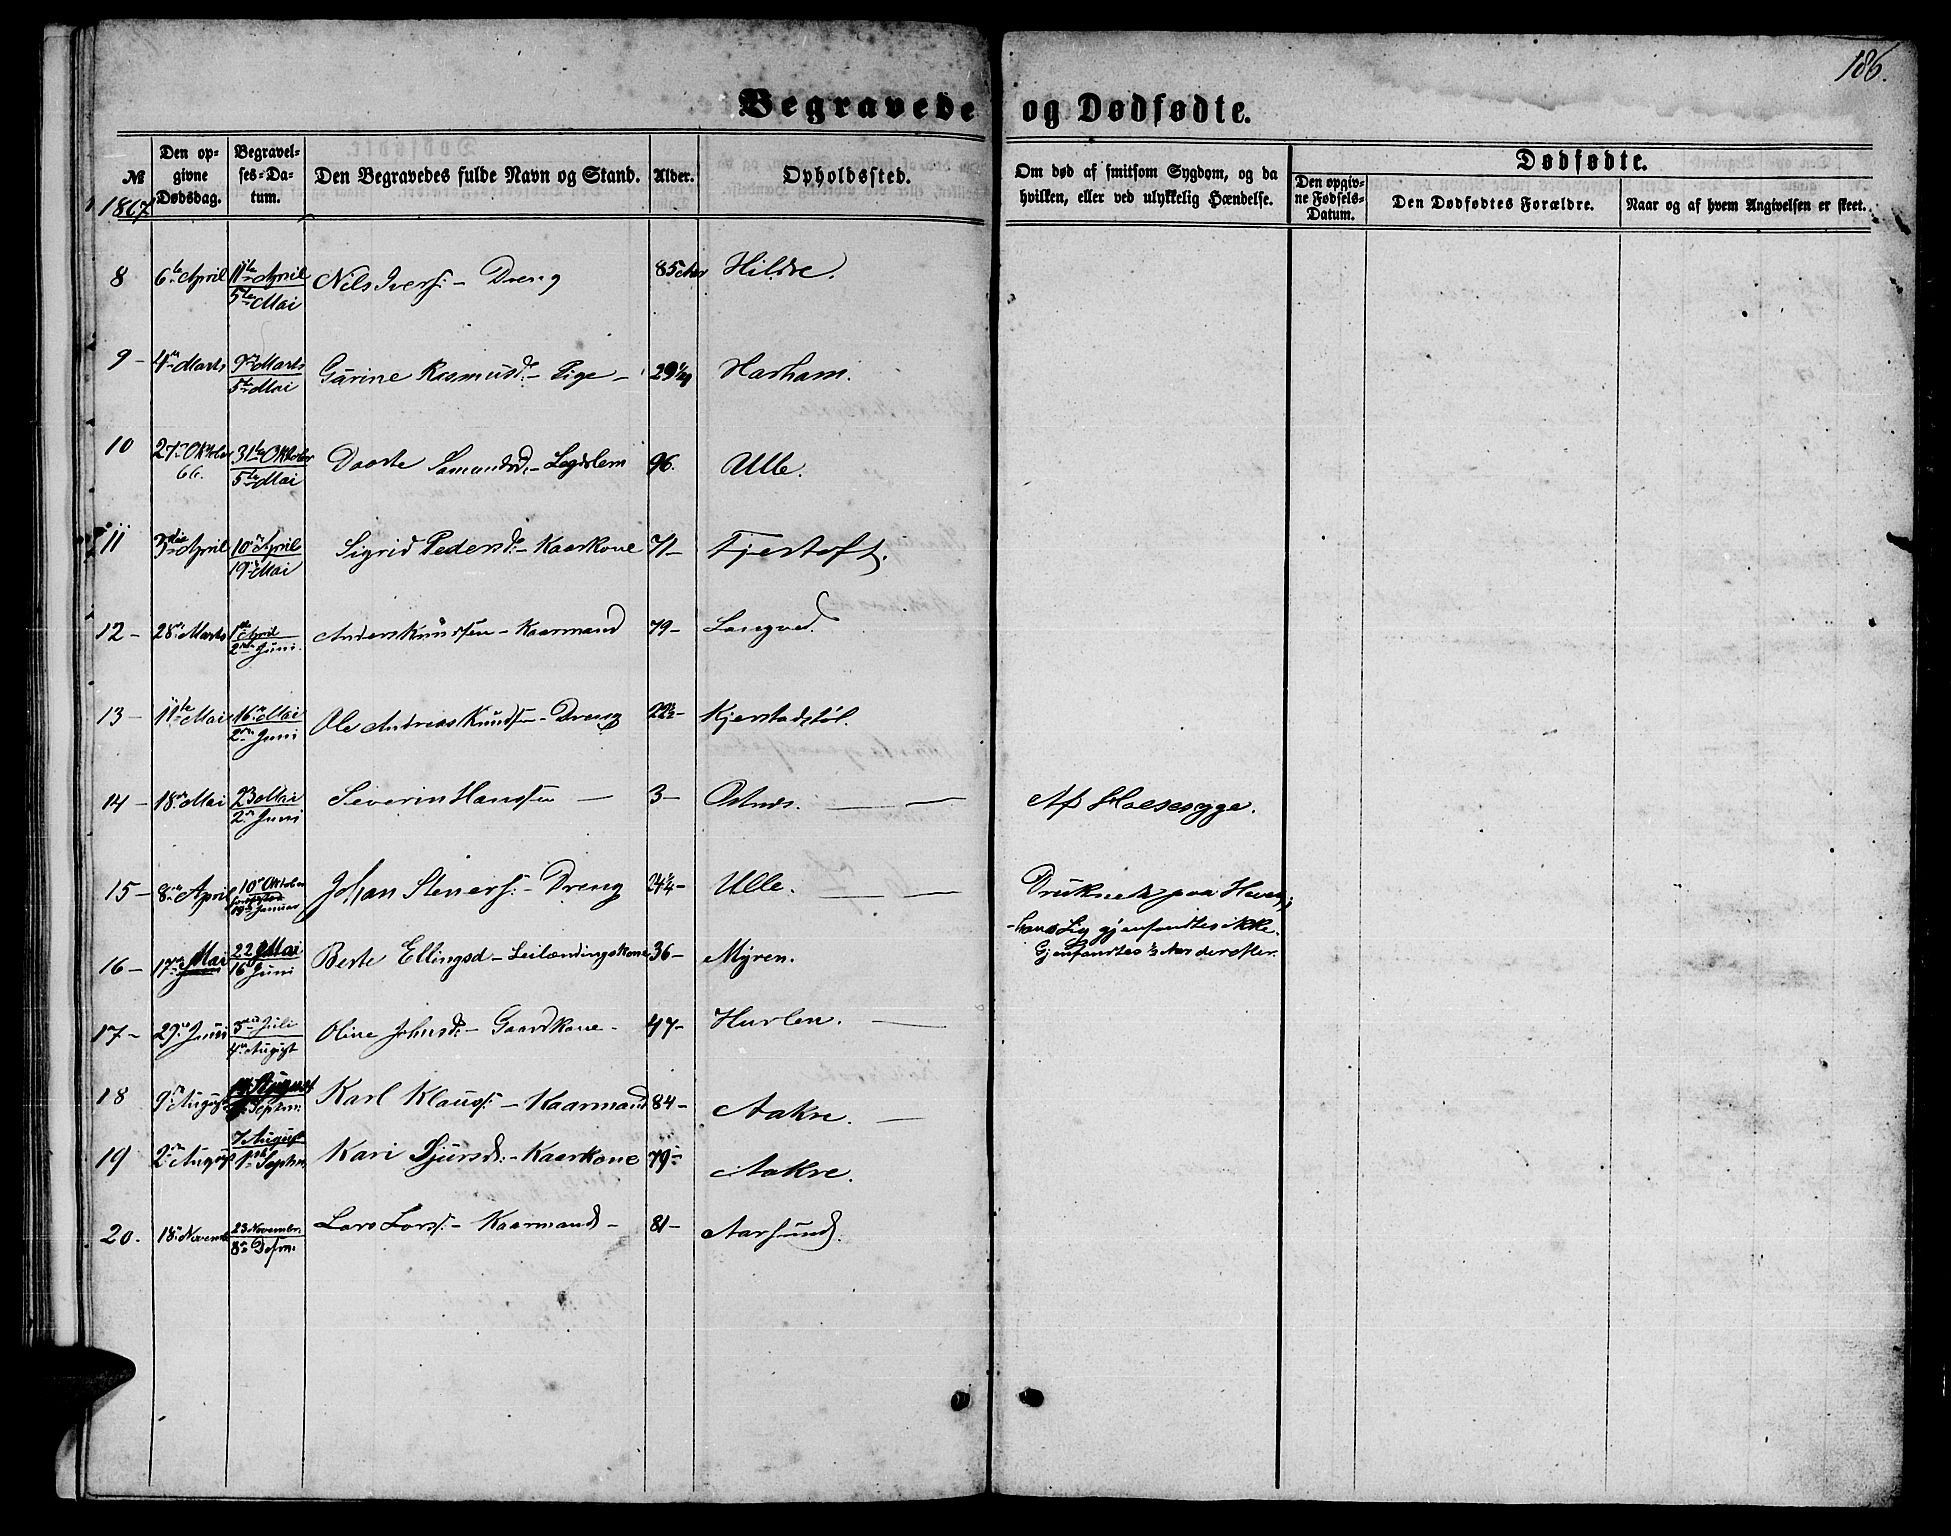 186.
Begravede og Dødfødte.
№ Den opgivne Dødsdag. Begravelses-Datum. Den Begravedes fulde Navn og Stand. Alder. Opholdssted. Om død af smitsom Sygdom, og da hvilken, eller ved ulykkelig Hændelse. Dødfødte.
Den opgivne Fødsels-Datum. Den Dødfødtes Forældre. Naar og af hvem Angivelsen er skeet.
1867
8 6te April 11te April 5te Mai Nils Ivers: - Dreng 85 Aar Hildre.
9 - 4de Marts 9de Marts 5te Mai Gurine Rasmusd: - Pige - 29 Harham.
10 27 Oktober 66. 31te Oktober 5te Mai Doorte Samundsd: - Legdslem 96. Ulle.
11 3die April 10de April 19de Mai Sigrid Pedersd: - Kaarkone 71 - Fjertoft.
12 - 28de Marts 1ste April 2den Juni. Anders Knudsen - Kaarmand 79 - Longved.
13 - 11te Mai 16de Mai 2den Juni Ole Andreas Knudsen - Dreng 22½ - Kjerstadstøl.
14 - 18de Mai 23 Mai 2den Juni Severin Hanssen - 3 - Ostnes. Af Halsesyge.
15 - 8de April 10de Oktober Januar Johan Steners: - Dreng 24¼ - Ulle. Druknede paa Havet;
- hans Lig gjenfandtes ikke.
Gjenfandtes ½ Aar derefter.
16 - 17de Mai 22 Mai 16de Juni Berte Ellingsd - Leilændingskone 36 - Myren.
17 - 29de Juni 3die Juli 4de August Oline Johnsd: - Gaardkone - 47 - Hurlen.
18 9de August August Septem. Karl Klaus: - Kaarmand 84 - Aakre.
19 2den August 7 August 1ste Septem. Kari Sjursd: - Kaarkone 79 - Aakre.
20. 18de November 23 November. 8de Desem. Lars Lars: - Kaarmand - 81 - Aarsund.